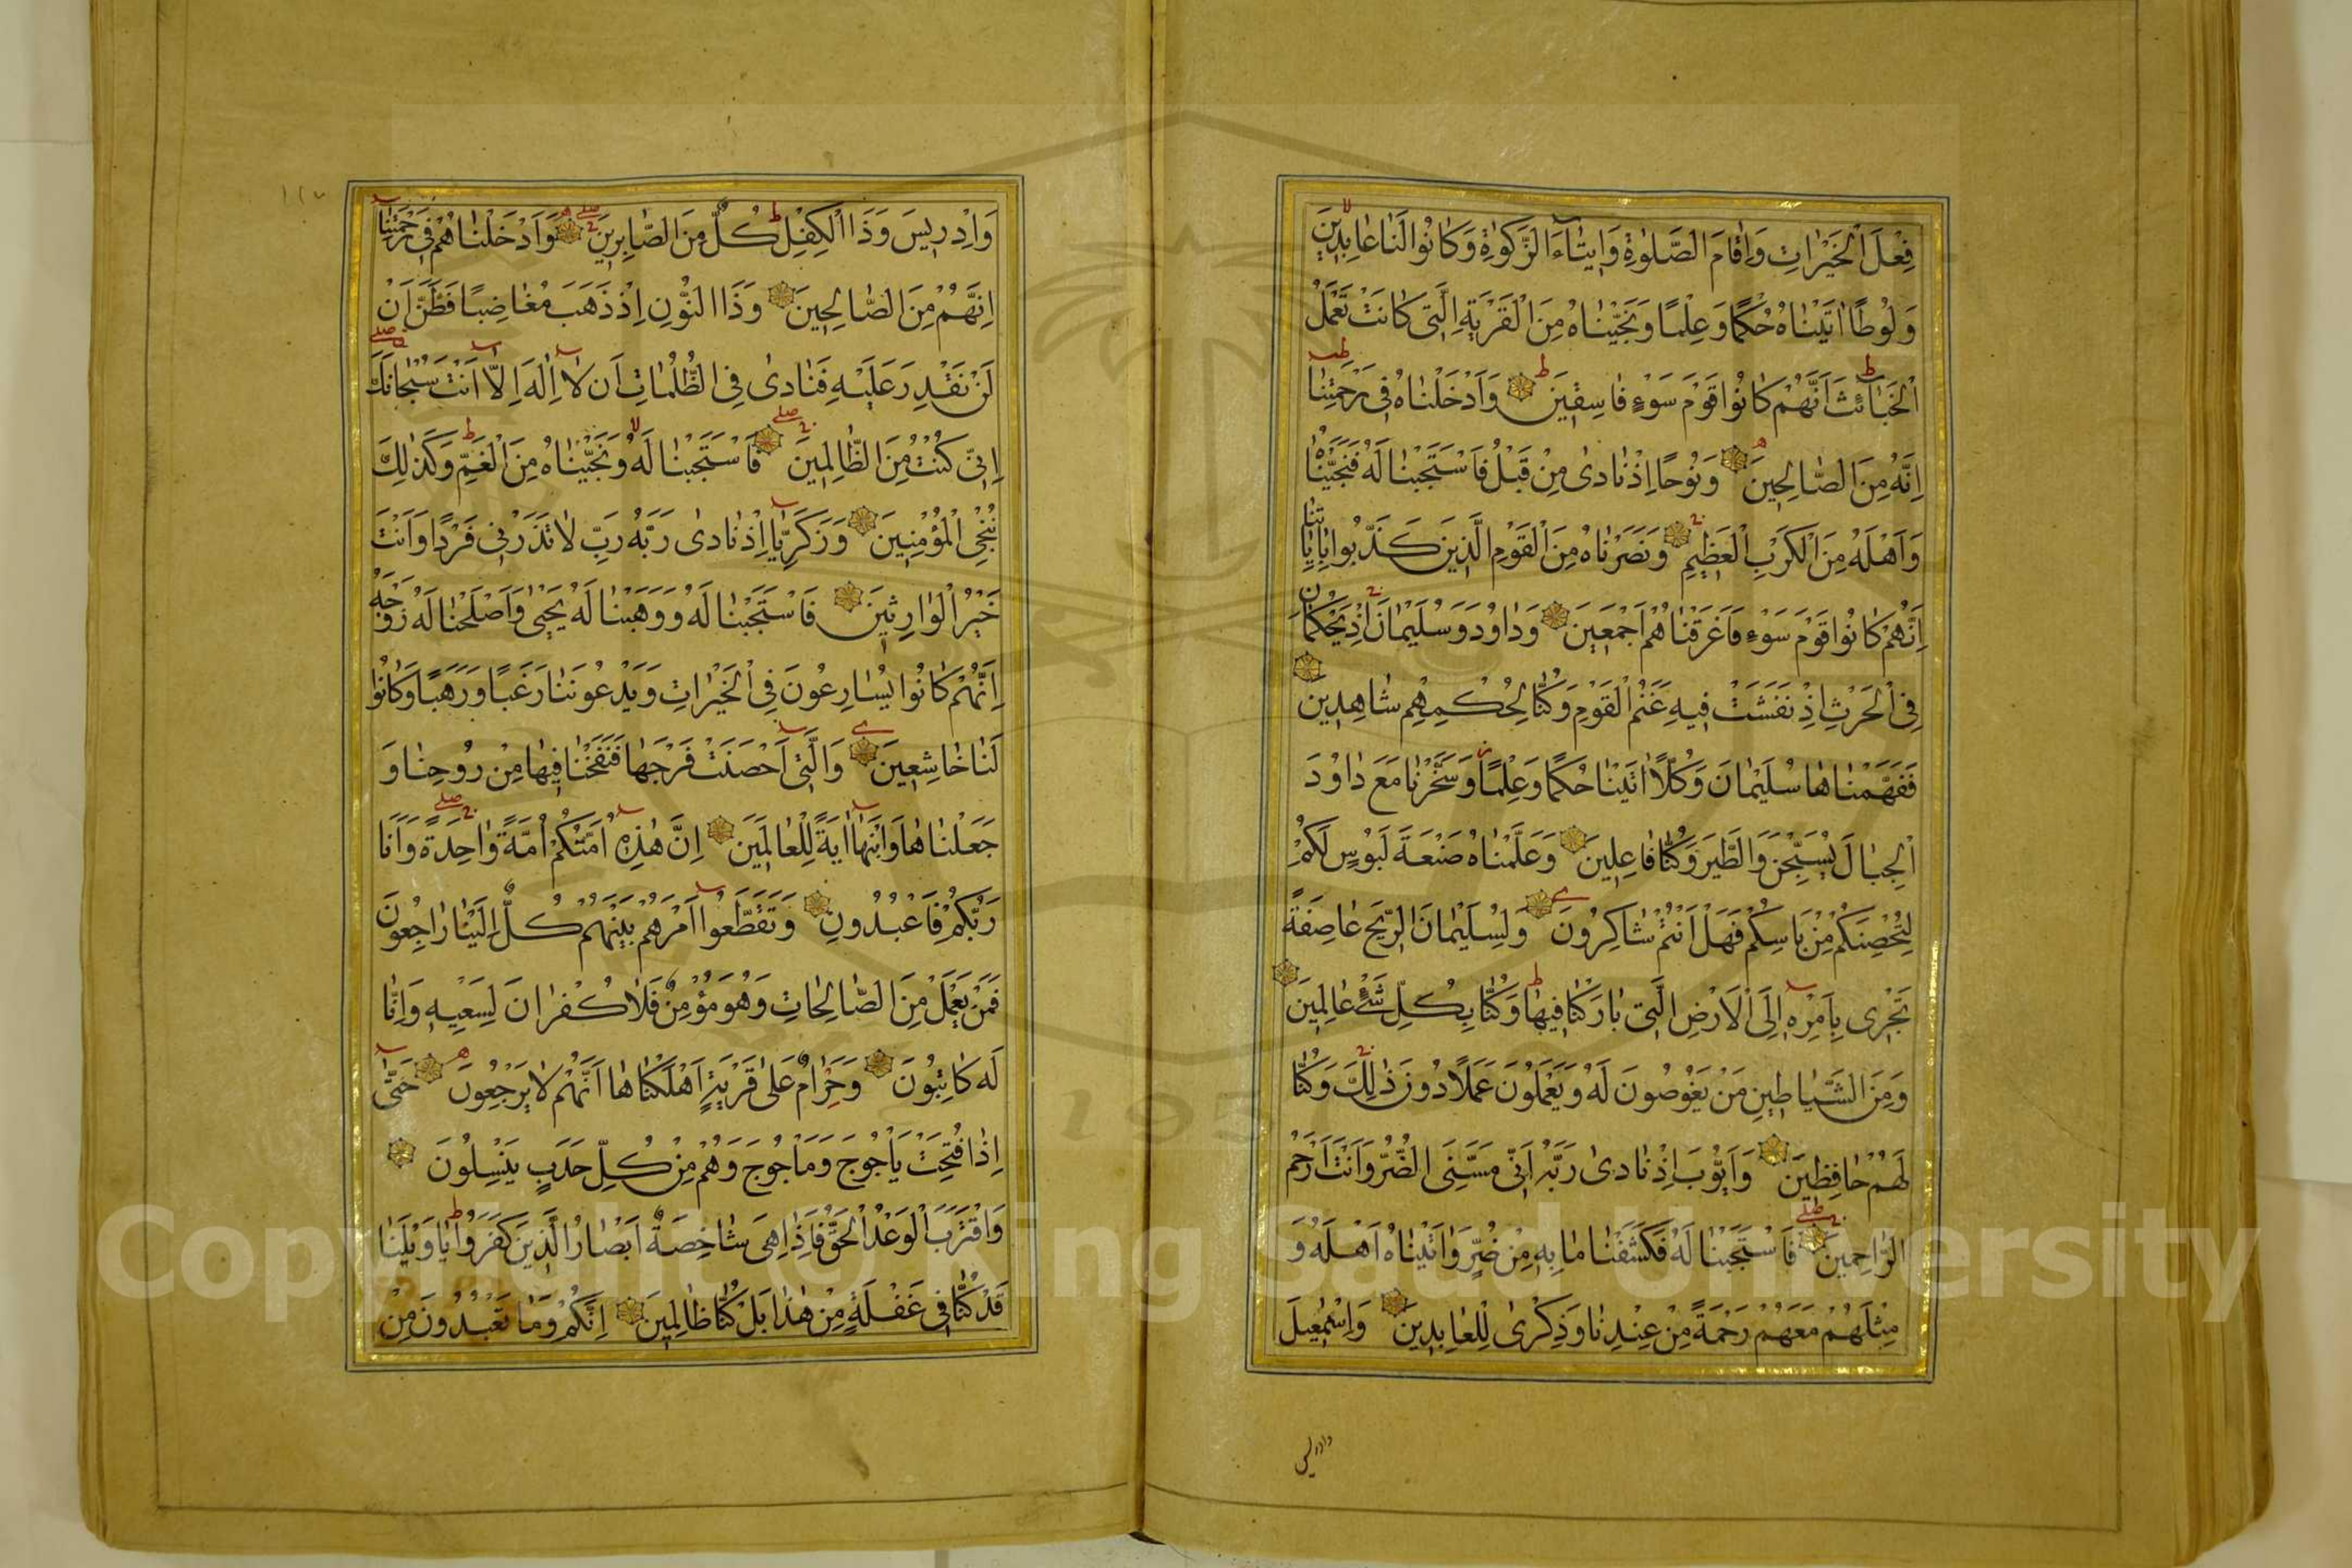 فِعْلَ الْخَيْرَاتِ وَاِقَامَ الصَّلٰوةِ وَاِيتَاءَ الزَّكٰوةِ وَكَانُوا لَنَا عَابِدِينَ
وَلُوطًا اٰتَيْنَاهُ حُكْمًا وَعِلْمًا وَنَجَّيْنَاهُ مِنَ الْقَرْيَةِ الَّتِي كَانَتْ تَعْمَلُ
الْخَبَائِثَ اِنَّهُمْ كَانُوا قَوْمَ سَوْءٍ فَاسِقِينَ وَاَدْخَلْنَاهُ فِي رَحْمَتِنَا
اِنَّهُ مِنَ الصَّالِحِينَ وَنُوحًا اِذْ نَادٰى مِنْ قَبْلُ فَاسْتَجَبْنَا لَهُ فَنَجَّيْنَاهُ
وَاَهْلَهُ مِنَ الْكَرْبِ الْعَظِيمِ وَنَصَرْنَاهُ مِنَ الْقَوْمِ الَّذِينَ كَذَّبُوا بِاٰيَاتِنَا
اِنَّهُمْ كَانُوا قَوْمَ سَوْءٍ فَاَغْرَقْنَاهُمْ اَجْمَعِينَ وَدَاوُدَ وَسُلَيْمَانَ اِذْ يَحْكُمَانِ
فِي الْحَرْثِ اِذْ نَفَشَتْ فِيهِ غَنَمُ الْقَوْمِ وَكُنَّا لِحُكْمِهِمْ شَاهِدِينَ
فَفَهَّمْنَاهَا سُلَيْمَانَ وَكُلًّا اٰتَيْنَا حُكْمًا وَعِلْمًا وَسَخَّرْنَا مَعَ دَاوُدَ
الْجِبَالَ يُسَبِّحْنَ وَالطَّيْرَ وَكُنَّا فَاعِلِينَ وَعَلَّمْنَاهُ صَنْعَةَ لَبُوسٍ لَكُمْ
لِتُحْصِنَكُمْ مِنْ بَاْسِكُمْ فَهَلْ اَنْتُمْ شَاكِرُونَ وَلِسُلَيْمَانَ الرِّيحَ عَاصِفَةً
تَجْرِي بِاَمْرِهِ اِلَى الْاَرْضِ الَّتِي بَارَكْنَا فِيهَا وَكُنَّا بِكُلِّ شَيْءٍ عَالِمِينَ
وَمِنَ الشَّيَاطِينِ مَنْ يَغُوصُونَ لَهُ وَيَعْمَلُونَ عَمَلًا دُونَ ذٰلِكَ وَكُنَّا
لَهُمْ حَافِظِينَ وَاَيُّوبَ اِذْ نَادٰى رَبَّهُ اَنِّي مَسَّنِيَ الضُّرُّ وَاَنْتَ اَرْحَمُ
الرَّاحِمِينَ فَاسْتَجَبْنَا لَهُ فَكَشَفْنَا مَا بِهِ مِنْ ضُرٍّ وَاٰتَيْنَاهُ اَهْلَهُ وَ
مِثْلَهُمْ مَعَهُمْ رَحْمَةً مِنْ عِنْدِنَا وَذِكْرٰى لِلْعَابِدِينَ وَاِسْمٰعِيلَ
وَاِدْرِيسَ وَذَا الْكِفْلِ كُلٌّ مِنَ الصَّابِرِينَ وَاَدْخَلْنَاهُمْ فِي رَحْمَتِنَا
اِنَّهُمْ مِنَ الصَّالِحِينَ وَذَا النُّونِ اِذْ ذَهَبَ مُغَاضِبًا فَظَنَّ اَنْ
لَنْ نَقْدِرَ عَلَيْهِ فَنَادٰى فِي الظُّلُمَاتِ اَنْ لَا اِلٰهَ اِلَّا اَنْتَ سُبْحَانَكَ
اِنِّي كُنْتُ مِنَ الظَّالِمِينَ فَاسْتَجَبْنَا لَهُ وَنَجَّيْنَاهُ مِنَ الْغَمِّ وَكَذٰلِكَ
نُنْجِي الْمُؤْمِنِينَ وَزَكَرِيَّا اِذْ نَادٰى رَبَّهُ رَبِّ لَا تَذَرْنِي فَرْدًا وَاَنْتَ
خَيْرُ الْوَارِثِينَ فَاسْتَجَبْنَا لَهُ وَوَهَبْنَا لَهُ يَحْيٰى وَاَصْلَحْنَا لَهُ زَوْجَهُ
اِنَّهُمْ كَانُوا يُسَارِعُونَ فِي الْخَيْرَاتِ وَيَدْعُونَنَا رَغَبًا وَرَهَبًا وَكَانُوا
لَنَا خَاشِعِينَ وَالَّتِي اَحْصَنَتْ فَرْجَهَا فَنَفَخْنَا فِيهَا مِنْ رُوحِنَا وَ
جَعَلْنَاهَا وَابْنَهَا اٰيَةً لِلْعَالَمِينَ اِنَّ هٰذِهِ اُمَّتُكُمْ اُمَّةً وَاحِدَةً وَاَنَا
رَبُّكُمْ فَاعْبُدُونِ وَتَقَطَّعُوا اَمْرَهُمْ بَيْنَهُمْ كُلٌّ اِلَيْنَا رَاجِعُونَ
فَمَنْ يَعْمَلْ مِنَ الصَّالِحَاتِ وَهُوَ مُؤْمِنٌ فَلَا كُفْرَانَ لِسَعْيِهِ وَاِنَّا
لَهُ كَاتِبُونَ وَحَرَامٌ عَلٰى قَرْيَةٍ اَهْلَكْنَاهَا اَنَّهُمْ لَا يَرْجِعُونَ حَتّٰى
اِذَا فُتِحَتْ يَاْجُوجُ وَمَاْجُوجُ وَهُمْ مِنْ كُلِّ حَدَبٍ يَنْسِلُونَ
وَاقْتَرَبَ الْوَعْدُ الْحَقُّ فَاِذَا هِيَ شَاخِصَةٌ اَبْصَارُ الَّذِينَ كَفَرُوا يَا وَيْلَنَا
قَدْ كُنَّا فِي غَفْلَةٍ مِنْ هٰذَا بَلْ كُنَّا ظَالِمِينَ اِنَّكُمْ وَمَا تَعْبُدُونَ مِنْ
Copyright © King Saud University